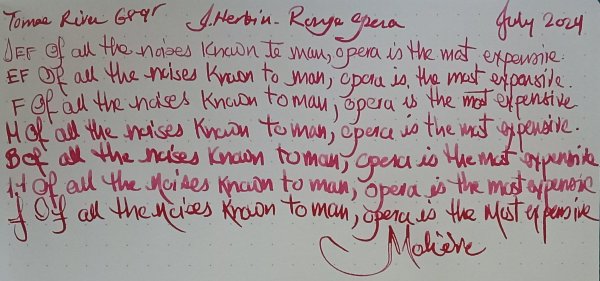 Tomoe River 68gr J.Herbin - Rouge Opera July 2024
JEF Of all the noises known to man, opera is the most expensive.
EF Of all the noises known to man, opera is the most expensive.
F Of all the noises known to man, opera is the most expensive
M Of all the noises known to man, opera is the most expensive.
B Of all the noises known to man, opera is the most expensive
1.1 Of all the Noises Known to man, opera is the most expensive
f Of all the Noises Known to man, opera is the Most expensive
Molière